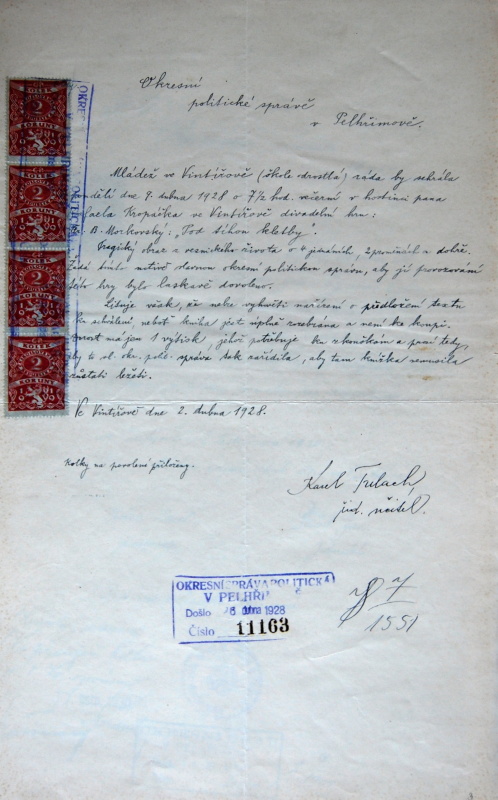 Okresní
politické správě
v Pelhřimově.
Mládež ve Vintířově (škole odrostlá) ráda by sehrála
neděli dne 9. dubna 1928 o 7½ hod. večerní v hostinci pana
Kropáčka ve Vintířově divadelní hru:
B. Morkovský: „Pod tíhou kletby".
Tragický obraz z vesnického života o 4 jednáních, 2 proměnách a dohře.
žádá tímto uctivě slavnou okresní politickou správu, aby jí provozování
této hry bylo laskavě dovoleno.
Lituje však, že nelze vyhověti nařízení o předložení textu
ke schválení, neboť kniha jest úplně rozebrána a není ke koupi.
má jen 1 výtisk, jehož potřebuje ke zkouškám a prosí tedy,
aby to sl. okr. polit. správa tak zařídila, aby tam knížka nemusila
zůstati ležeti.
Ve Vintířově dne 2. dubna 1928.
Kolky na povolení přiloženy.
Karel
říd. učitel.
KOLEK
2
KORUNY
KOLEK
2
KORUNY
KOLEK
2
KORUNY
KOLEK
2
KORUNY
OKRESNÍ SPRÁVA POLITICKÁ
V PELHŘI
Došlo 6 dubna 1928
Číslo 11163
7
1551